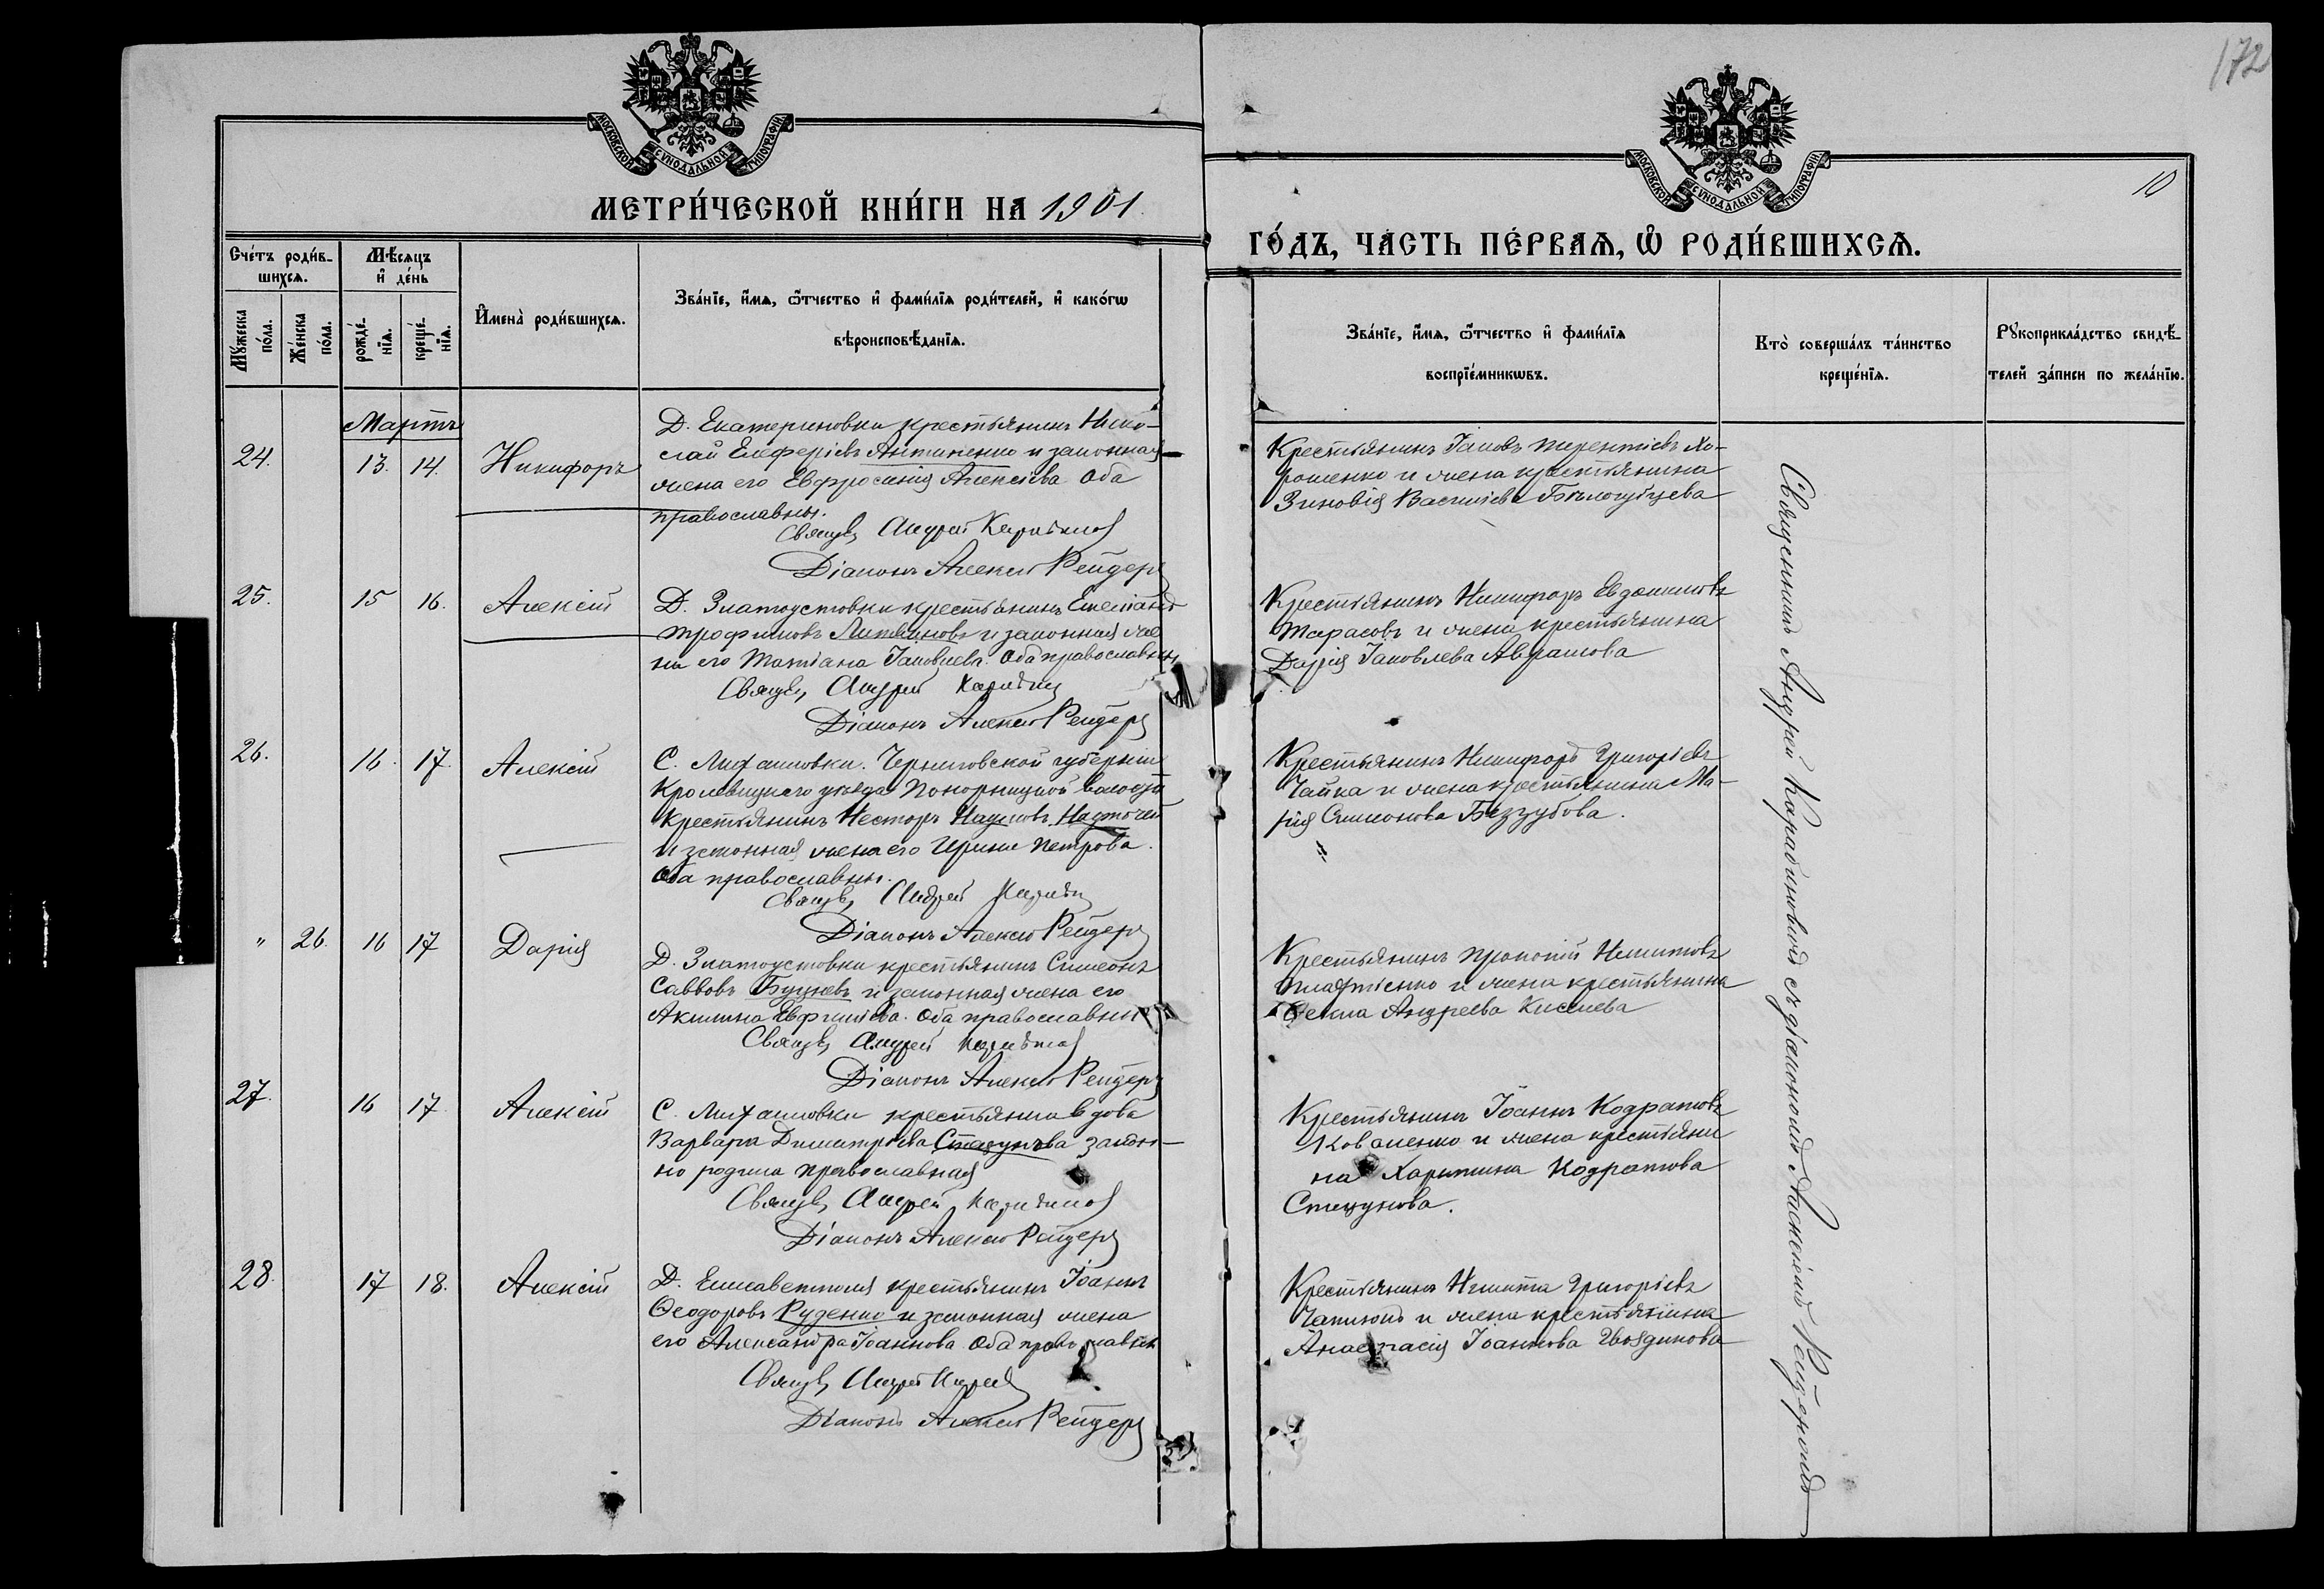 172
МОСКОВСКОЙ СѴНОДАЛЬНОЙ ТИПОГРАФІИ
МОСКОВСКОЙ СѴНОДАЛЬНОЙ ТИПОГРАФІИ
10
МЕТРИ́ЧЕСКОЙ КНИ́ГИ НА 1901
ГО́ДЪ, ЧА́СТЬ ПЕ́РВАѦ, Ѡ҆ РОДИ́ВШИХСѦ.
Сче́тъ роди́в-
шихсѧ.
Мѹ́жеска по́ла.
Же́нска по́ла.
Мѣ́сѧцъ
и҆ де́нь
рожде́-
нїѧ.
креще́-
нїѧ.
И҆мена̀ роди́вшихсѧ.
Зва́нїе, и҆́мѧ, ѻ҆́тчество и҆ фами́лїѧ роди́телей, и҆ како́гѡ
вѣроисповѣ́данїѧ.
Зва́нїе, и҆́мѧ, ѻ҆́тчество и҆ фами́лїѧ
воспрїе́мникѡвъ.
Кто̀ соверша́лъ та́инство
креще́нїѧ.
Рѹкоприкла́дство свидѣ́-
телей за́писи по жела́нїю.
Мартъ
24. 13. 14. Никифоръ
Д. Екатериновки крестьянинъ Нико-
лай Елеферіевъ Антипенко и законная
жена его Евфросинія Алексіева Оба
православны.
Священ. Андрей
Діаконъ Алексій Рейдеръ
Крестьянинъ Іаковъ Терентіевъ Хо-
рошенко и жена крестьянина
Зиновія Васильева Бѣлогубцева
25. 15 16. Алексій
Д. Златоустовки крестьянинъ Емеліанъ
Трофимовъ Литвиновъ и законная же
на его Татіана Іаковлева. Оба православны
Священ. Андрей
Діаконъ Алексій Рейдеръ
Крестьянинъ Никифоръ Евдокимовъ
Тарасовъ и жена крестьянина
Дарія Іаковлева Абрамова
26. 16. 17. Алексій
С. Михайловки. Черниговской губерніи
Кролевецкаго уѣзда Понорницкой волости
крестьянинъ Несторъ Наумовъ
и законная жена его Ирина Петрова.
Оба православны.
Священ. Андрей
Діаконъ Алексій Рейдеръ
Крестьянинъ Никифоръ Григоріевъ
Чайка и жена крестьянина Ма-
рія Симеонова Беззубова.
" 26. 16 17 Дарія
Д. Златоустовки крестьянинъ Симеонъ
Саввовъ и законная жена его
Акилина Евфиміева. Оба православны
Священ. Андрей
Діаконъ Алексій Рейдеръ
Крестьянинъ Прокопій Никитовъ
и жена крестьянина
Ѳекла Андреева Киселева
27. 16 17 Алексій
С. Михайловки крестьянка вдова
Варвара Димитріева закон-
но родила православная
Священ. Андрей
Діаконъ Алексій Рейдеръ
Крестьянинъ Іоаннъ Кодратовъ
Коваленко и жена крестьяни
на Харитина Кодратова
28. 17 18. Алексій
Д. крестьянинъ Іоаннъ
Ѳеодоровъ Руденко и законная жена
его Александра Іоаннова Оба православны
Священ. Андрей
Діаконъ Алексій Рейдеръ
Крестьянинъ Никита Григоріевъ
и жена крестьянина
Анастасія Іоаннова Гвоздикова
Священникъ Андрей Карабиновичъ съ діакономъ Алексіемъ Рейдеромъ